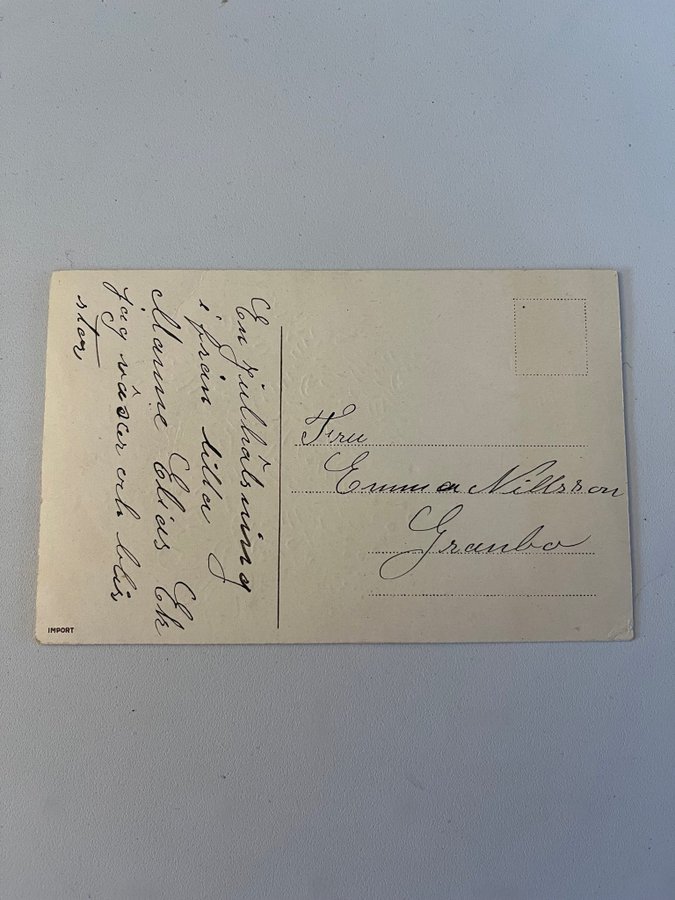 En Julhälsning
i från lilla
Manne Elias Ek
Jag växer och blir
stor
Fru
Emma Nillsson
Granbo
IMPORT